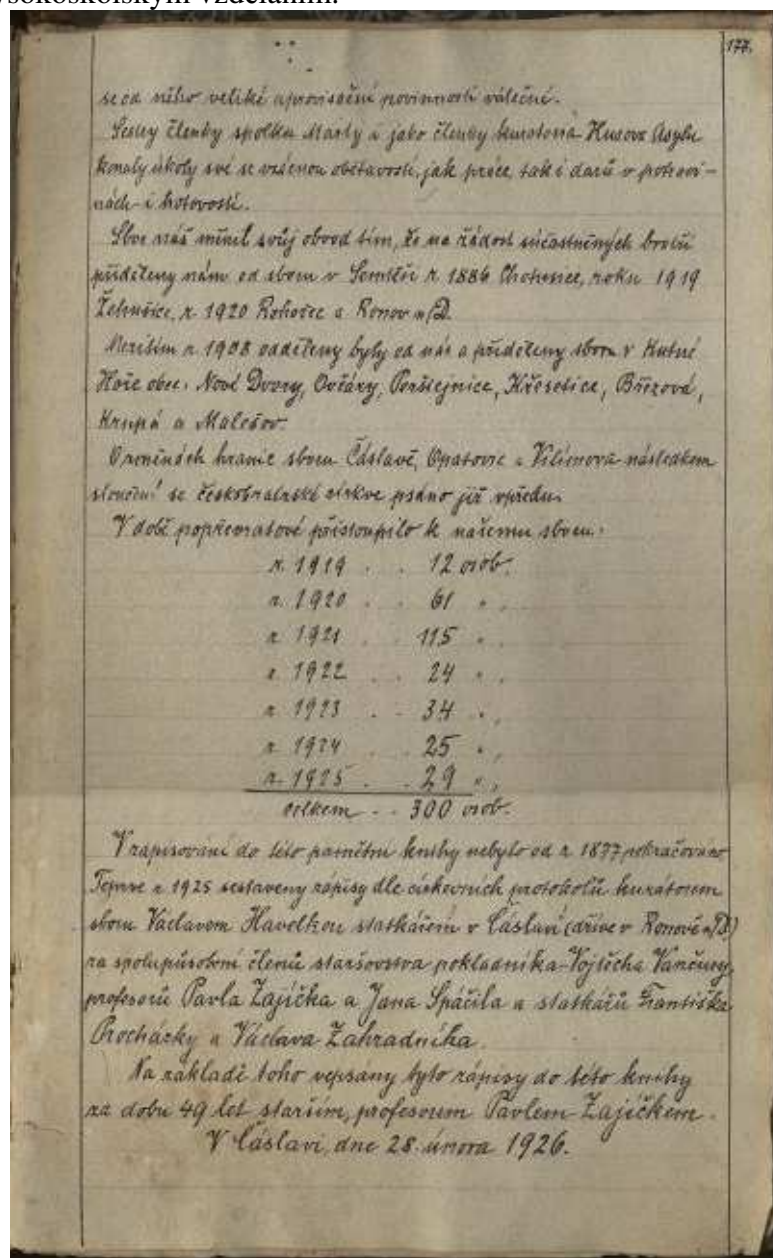 vysokoškolským vzděláním.
177.
se od něho veliké aprovisační povinnosti válečné.
Sestry členky spolku Marty i jako členky kuratoria Husova Asylu
konaly úkoly své se vzácnou obětavostí, jak práce, tak i darů v potravi-
nách i hotovosti.
Sbor náš měnil svůj obvod tím, že na žádost súčastněných bratří
přiděleny nám od sboru v Semtěši r. 1886 Chotusice, roku 1919
Žehušice, r. 1920 Rohozec a Ronov n/D.
Mezitím r. 1908 odděleny byly od nás a přiděleny sboru v Kutné
Hoře obce: Nové Dvory, Ovčáry, Perštejnice, Křesetice, Březová,
Krupá a Malešov.
O změnách hranic sboru Čáslavě, Opatovic a Vilímova následkem
sloučení se českobratrské církve psáno již vpředu.
V době popřevratové přistoupilo k našemu sboru:
r. 1919 . . 12 osob.
r. 1920 . . 61 " ,
r. 1921 . . 115 " ,
r. 1922 . . 24 " ,
r. 1923 . . 34 " ,
r. 1924 . . 25 " ,
r. 1925 . . 29 " ,
celkem . . 300 osob.
V zapisování do této pamětní knihy nebylo od r. 1877 pokračováno
Teprve r. 1925 sestaveny zápisy dle církevních protokolů kurátorem
sboru Václavem Havelkou statkářem v Čáslavi (dříve v Ronově n/D.)
za spolupůsobení členů staršovstva pokladníka Vojtěcha Vančury,
profesorů Pavla Zajíčka a Jana Spáčila a statkářů Františka
Procházky a Václava Zahradníka.
Na základě toho vepsany tyto zápisy do této knihy
za dobu 49 let starším, profesorem Pavlem Zajíčkem.
V Čáslavi, dne 28. února 1926.